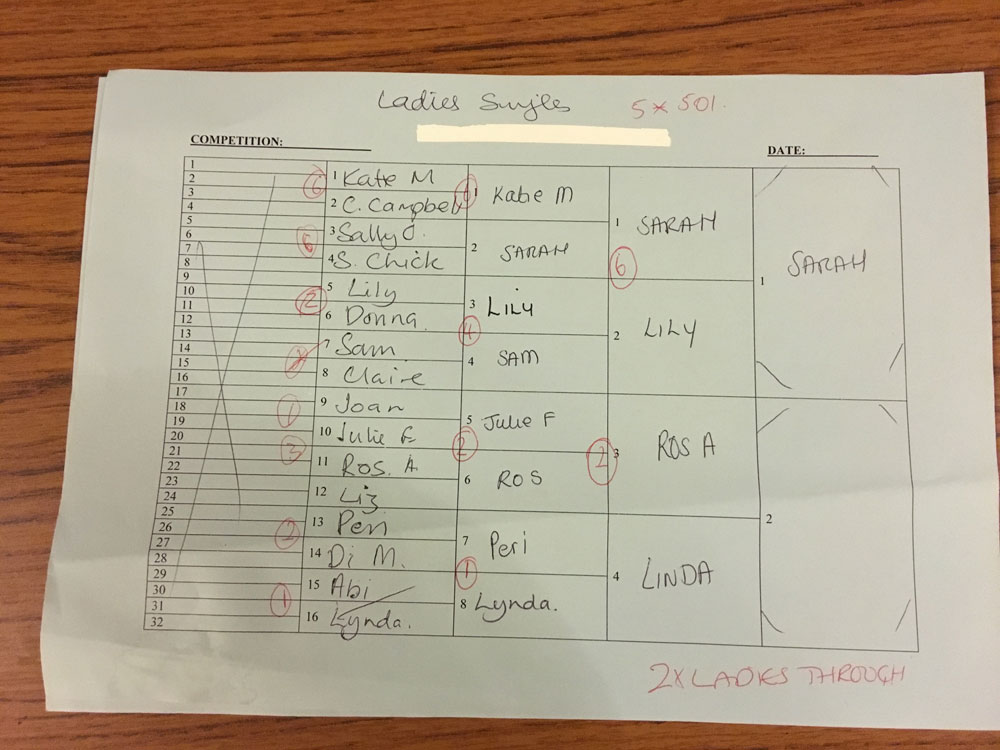 Ladies Singles 5 x 501.
COMPETITION:
DATE:
1
2
3
4
5
6
7
8
9
10
11
12
13
14
15
16
17
18
19
20
21
22
23
24
25
26
27
28
29
30
31
32
6
6
2
1
3
2
1
1 Kate M
2 C. Campbell
3 Sally C.
4 S. Chick
5 Lily
6 Donna
7 Sam
8 Claire
9 Joan
10 Julie F
11 Ros. A
12 Liz
13 Peri
14 Di M.
15 Abi
16 Lynda.
1 Katie M
2 SARAH
3 LILY
4
4 SAM
5 Julie F
2
6 ROS
7 Peri
1
8 Lynda.
1 SARAH
6
2 LILY
2
3 ROS A
4 LINDA
1 SARAH
2
2X LADIES THROUGH